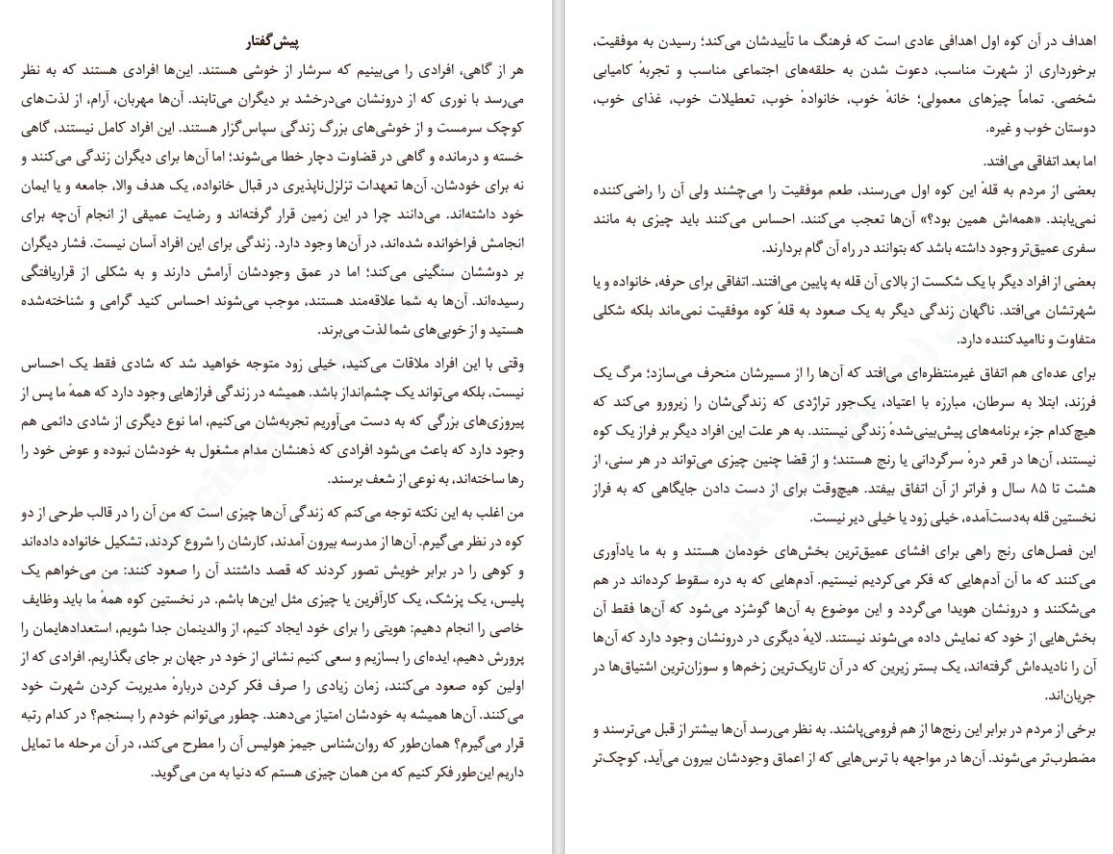 پیش‌گفتار
هر از گاهی، افرادی را می‌بینیم که سرشار از خوشی هستند. این‌ها افرادی هستند که به نظر
می‌رسد با نوری که از درونشان می‌درخشد بر دیگران می‌تابند. آن‌ها مهربان، آرام، از لذت‌های
کوچک سرمست و از خوشی‌های بزرگ زندگی سپاس‌گزار هستند. این افراد کامل نیستند، گاهی
خسته و درمانده و گاهی در قضاوت دچار خطا می‌شوند؛ اما آن‌ها برای دیگران زندگی می‌کنند و
نه برای خودشان. آن‌ها تعهدات تزلزل‌ناپذیری در قبال خانواده، یک هدف والا، جامعه و یا ایمان
خود داشته‌اند. می‌دانند چرا در این زمین قرار گرفته‌اند و رضایت عمیقی از انجام آن‌چه برای
انجامش فراخوانده شده‌اند، در آن‌ها وجود دارد. زندگی برای این افراد آسان نیست. فشار دیگران
بر دوششان سنگینی می‌کند؛ اما در عمق وجودشان آرامش دارند و به شکلی از قراریافتگی
رسیده‌اند. آن‌ها به شما علاقه‌مند هستند، موجب می‌شوند احساس کنید گرامی و شناخته‌شده
هستید و از خوبی‌های شما لذت می‌برند.
وقتی با این افراد ملاقات می‌کنید، خیلی زود متوجه خواهید شد که شادی فقط یک احساس
نیست، بلکه می‌تواند یک چشم‌انداز باشد. همیشه در زندگی فرازهایی وجود دارد که همهٔ ما پس از
پیروزی‌های بزرگی که به دست می‌آوریم تجربه‌شان می‌کنیم، اما نوع دیگری از شادی دائمی هم
وجود دارد که باعث می‌شود افرادی که ذهنشان مدام مشغول به خودشان نبوده و عوض خود را
رها ساخته‌اند، به نوعی از شعف برسند.
من اغلب به این نکته توجه می‌کنم که زندگی آن‌ها چیزی است که من آن را در قالب طرحی از دو
کوه در نظر می‌گیرم. آن‌ها از مدرسه بیرون آمدند، کارشان را شروع کردند، تشکیل خانواده داده‌اند
و کوهی را در برابر خویش تصور کردند که قصد داشتند آن را صعود کنند: من می‌خواهم یک
پلیس، یک پزشک، یک کارآفرین یا چیزی مثل این‌ها باشم. در نخستین کوه همهٔ ما باید وظایف
خاصی را انجام دهیم: هویتی را برای خود ایجاد کنیم، از والدینمان جدا شویم، استعدادهایمان را
پرورش دهیم، ایده‌ای را بسازیم و سعی کنیم نشانی از خود در جهان بر جای بگذاریم. افرادی که از
اولین کوه صعود می‌کنند، زمان زیادی را صرف فکر کردن دربارهٔ مدیریت کردن شهرت خود
می‌کنند. آن‌ها همیشه به خودشان امتیاز می‌دهند. چطور می‌توانم خودم را بسنجم؟ در کدام رتبه
قرار می‌گیرم؟ همان‌طور که روان‌شناس جیمز هولیس آن را مطرح می‌کند، در آن مرحله ما تمایل
داریم این‌طور فکر کنیم که من همان چیزی هستم که دنیا به من می‌گوید.
اهداف در آن کوه اول اهدافی عادی است که فرهنگ ما تأییدشان می‌کند؛ رسیدن به موفقیت،
برخورداری از شهرت مناسب، دعوت شدن به حلقه‌های اجتماعی مناسب و تجربهٔ کامیابی
شخصی. تماماً چیزهای معمولی؛ خانهٔ خوب، خانوادهٔ خوب، تعطیلات خوب، غذای خوب،
دوستان خوب و غیره.
اما بعد اتفاقی می‌افتد.
بعضی از مردم به قلهٔ این کوه اول می‌رسند، طعم موفقیت را می‌چشند ولی آن را راضی‌کننده
نمی‌یابند. «همه‌اش همین بود؟» آن‌ها تعجب می‌کنند. احساس می‌کنند باید چیزی به مانند
سفری عمیق‌تر وجود داشته باشد که بتوانند در راه آن گام بردارند.
بعضی از افراد دیگر با یک شکست از بالای آن قله به پایین می‌افتند. اتفاقی برای حرفه، خانواده و یا
شهرتشان می‌افتد. ناگهان زندگی دیگر به یک صعود به قلهٔ کوه موفقیت نمی‌ماند بلکه شکلی
متفاوت و ناامیدکننده دارد.
برای عده‌ای هم اتفاق غیرمنتظره‌ای می‌افتد که آن‌ها را از مسیرشان منحرف می‌سازد؛ مرگ یک
فرزند، ابتلا به سرطان، مبارزه با اعتیاد، یک‌جور تراژدی که زندگی‌شان را زیرورو می‌کند که
هیچ‌کدام جزء برنامه‌های پیش‌بینی‌شدهٔ زندگی نیستند. به هر علت این افراد دیگر بر فراز یک کوه
نیستند، آن‌ها در قعر درهٔ سرگردانی یا رنج هستند؛ و از قضا چنین چیزی می‌تواند در هر سنی، از
هشت تا ۸۵ سال و فراتر از آن اتفاق بیفتد. هیچ‌وقت برای از دست دادن جایگاهی که به فراز
نخستین قله به‌دست‌آمده، خیلی زود یا خیلی دیر نیست.
این فصل‌های رنج راهی برای افشای عمیق‌ترین بخش‌های خودمان هستند و به ما یادآوری
می‌کنند که ما آن آدم‌هایی که فکر می‌کردیم نیستیم. آدم‌هایی که به دره سقوط کرده‌اند در هم
می‌شکنند و درونشان هویدا می‌گردد و این موضوع به آن‌ها گوشزد می‌شود که آن‌ها فقط آن
بخش‌هایی از خود که نمایش داده می‌شوند نیستند. لایهٔ دیگری در درونشان وجود دارد که آن‌ها
آن را نادیده‌اش گرفته‌اند، یک بستر زیرین که در آن تاریک‌ترین زخم‌ها و سوزان‌ترین اشتیاق‌ها در
جریان‌اند.
برخی از مردم در برابر این رنج‌ها از هم فرومی‌پاشند. به نظر می‌رسد آن‌ها بیشتر از قبل می‌ترسند و
مضطرب‌تر می‌شوند. آن‌ها در مواجهه با ترس‌هایی که از اعماق وجودشان بیرون می‌آید، کوچک‌تر